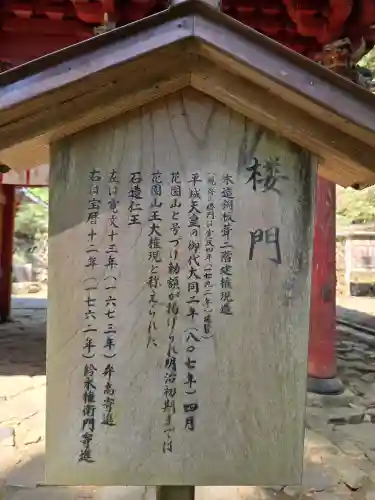 楼門
木造銅板葺二階建権現造
(現在の楼門は宝永四年(一七〇七年)建築)
平城天皇の御代大同二年(八〇七年)四月
花園山と号づけ勅額が掲げられ明治初期までは
花園山王大権現と称えられた
石造仁王
左は寛文十三年(一六七三年)牟高寄進
右は宝暦十二年(一七六二年)鈴木権衛門寄進